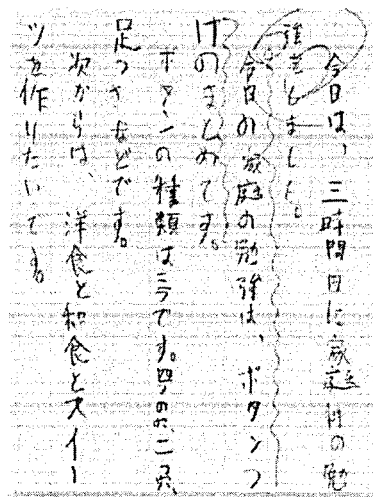 今日は、三時間目に家庭科の勉
強をしました。
今日の家庭の勉強は、ボタンつ
けのまとめです。
ボタンの種類は三つです。四つ穴、二つ穴、
足つきなどです。
次からは、洋食と和食とスイー
ツを作りたいです。